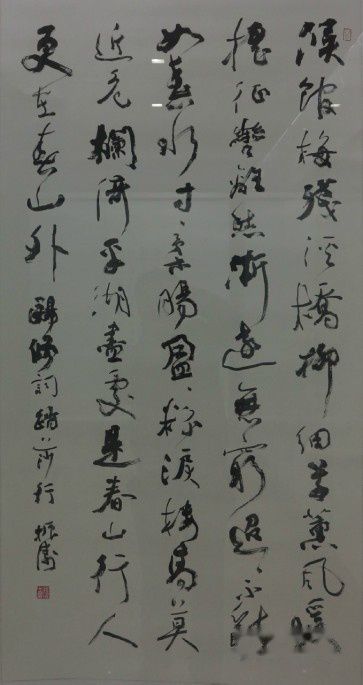 候館梅殘溪橋柳細草薰風暖
搖征轡離愁漸遠無窮迢、不斷
如春水寸、柔腸盈、粉淚樓高莫
近危欄倚平湖盡處是春山行人
更在春山外 歐修詞踏莎行